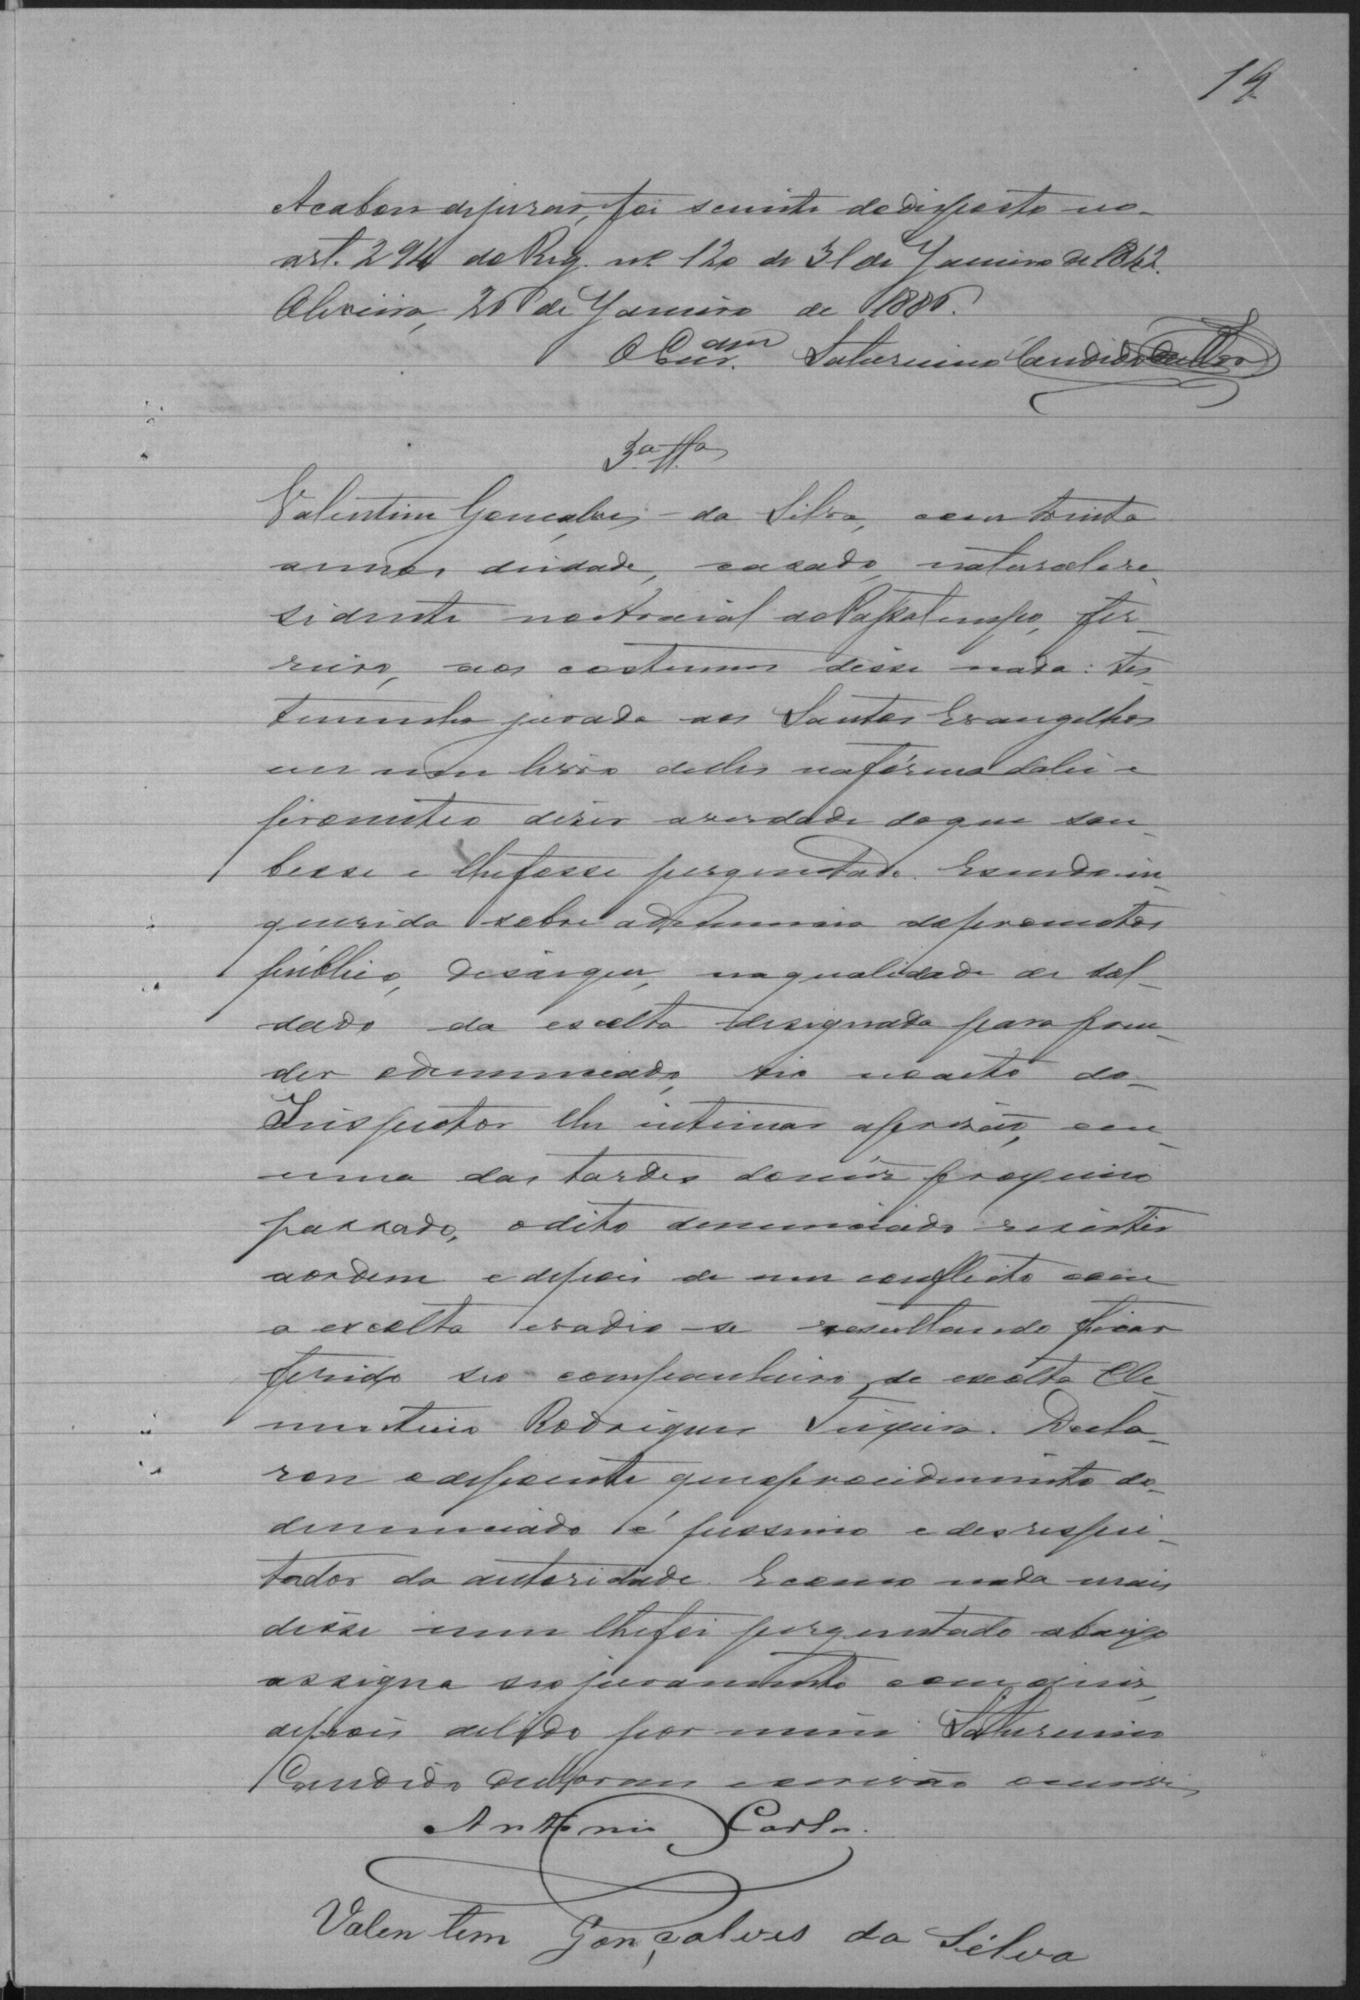 14
Acabou depurar, foi sciente do disposto no
art. 294 do Reg. nº 120 de 31 de Janeiro de 1842.
Oliveira, 26 de Janeiro de 1886.
O Escam. Saturnino Candido
3ª Tª
Valentim Gonçalves da Silva, com trinta
annos de idade, casado, natural e re
sidente no Arraial do Passatempo, fer-
reiro, aos costumes disse nada: tes-
temunha jurada aos Santos Evangelhos
em um livro delles na fórma da lei e
prometteo diser a verdade do que sou-
besse e lhe fosse perguntado. E sendo in-
querido sobre a denuncia do promotor
publico, disse que, na qualidade de sol-
dado da escolta designada para pren-
der o denunciado, vio no acto do
Inspector lhe intimar a prisão, em
uma das tardes do mez proximo
passado, o dito denunciado resistir
a ordem e depois de um conflicto com
a escolta evadio-se resultando ficar
ferido seo companheiro de escolta Cle
mentino Rodrigues Teixeira. Decla-
rou o depoente que o procedimento do
denunciado é pessimo e desrespei-
tador da autoridade. E como nada mais
disse nem lhe foi perguntado abaixo
assigna seo juramento com o juiz,
depois de lido por mim Saturnino
Candido escrivão escrevi
Antonio Carlos
Valentim Gonçalves da Silva